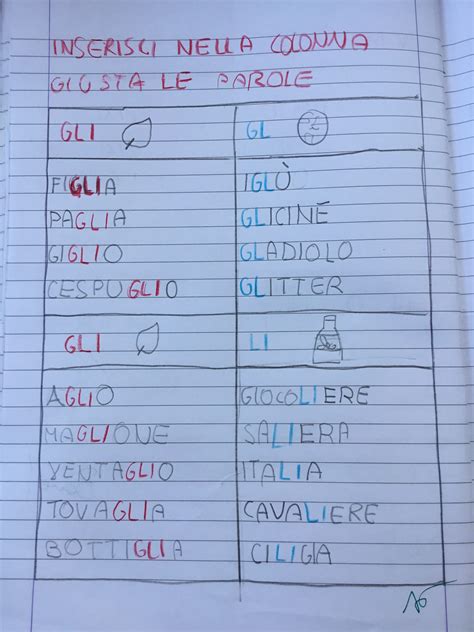 INSERISCI NELLA COLONNA
GIUSTA LE PAROLE
GLI GL
FIGLIA IGLÙ
PAGLIA GLICINE
GIGLIO GLADIOLO
CESPUGLIO GLITTER
GLI LI
AGLIO GIOCOLIERE
MAGLIONE SALIERA
VENTAGLIO ITALIA
TOVAGLIA CAVALIERE
BOTTIGLIA